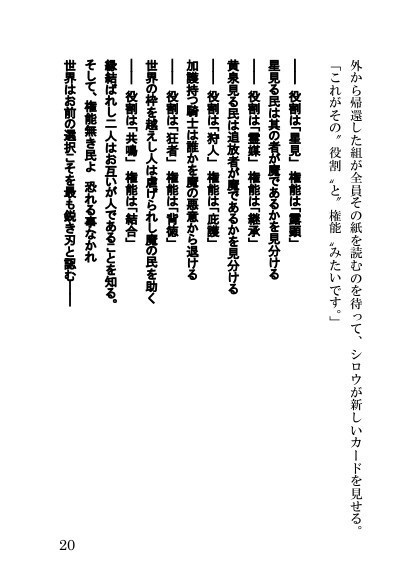 外から帰還した組が全員その紙を読むのを待って、シロウが新しいカードを見せる。
「これがその〝役割〟と〝権能〟みたいです。」
―― 役割は「星見」 権能は「露顕」
星見る民は其の者が魔であるかを見分ける
―― 役割は「霊媒」 権能は「継承」
黄泉見る民は追放者が魔であるかを見分ける
―― 役割は「狩人」 権能は「庇護」
加護持つ騎士は誰かを魔の悪意から退ける
―― 役割は「狂者」 権能は「背徳」
世界の枠を越えし人は虐げられし魔の民を助く
―― 役割は「共鳴」 権能は「結合」
縁結ばれし二人はお互いが人であることを知る。
そして、権能無き民よ 恐れる事なかれ
世界はお前の選択こそを最も鋭き刃と認む――
20